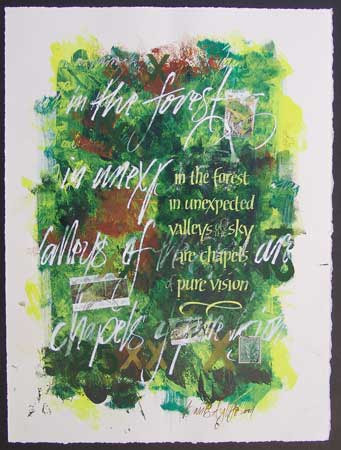 in the forest
in unexp
valleys of the are
chapels of pure vision
in the forest
in unexpected
valleys of sky
are chapels
of pure vision